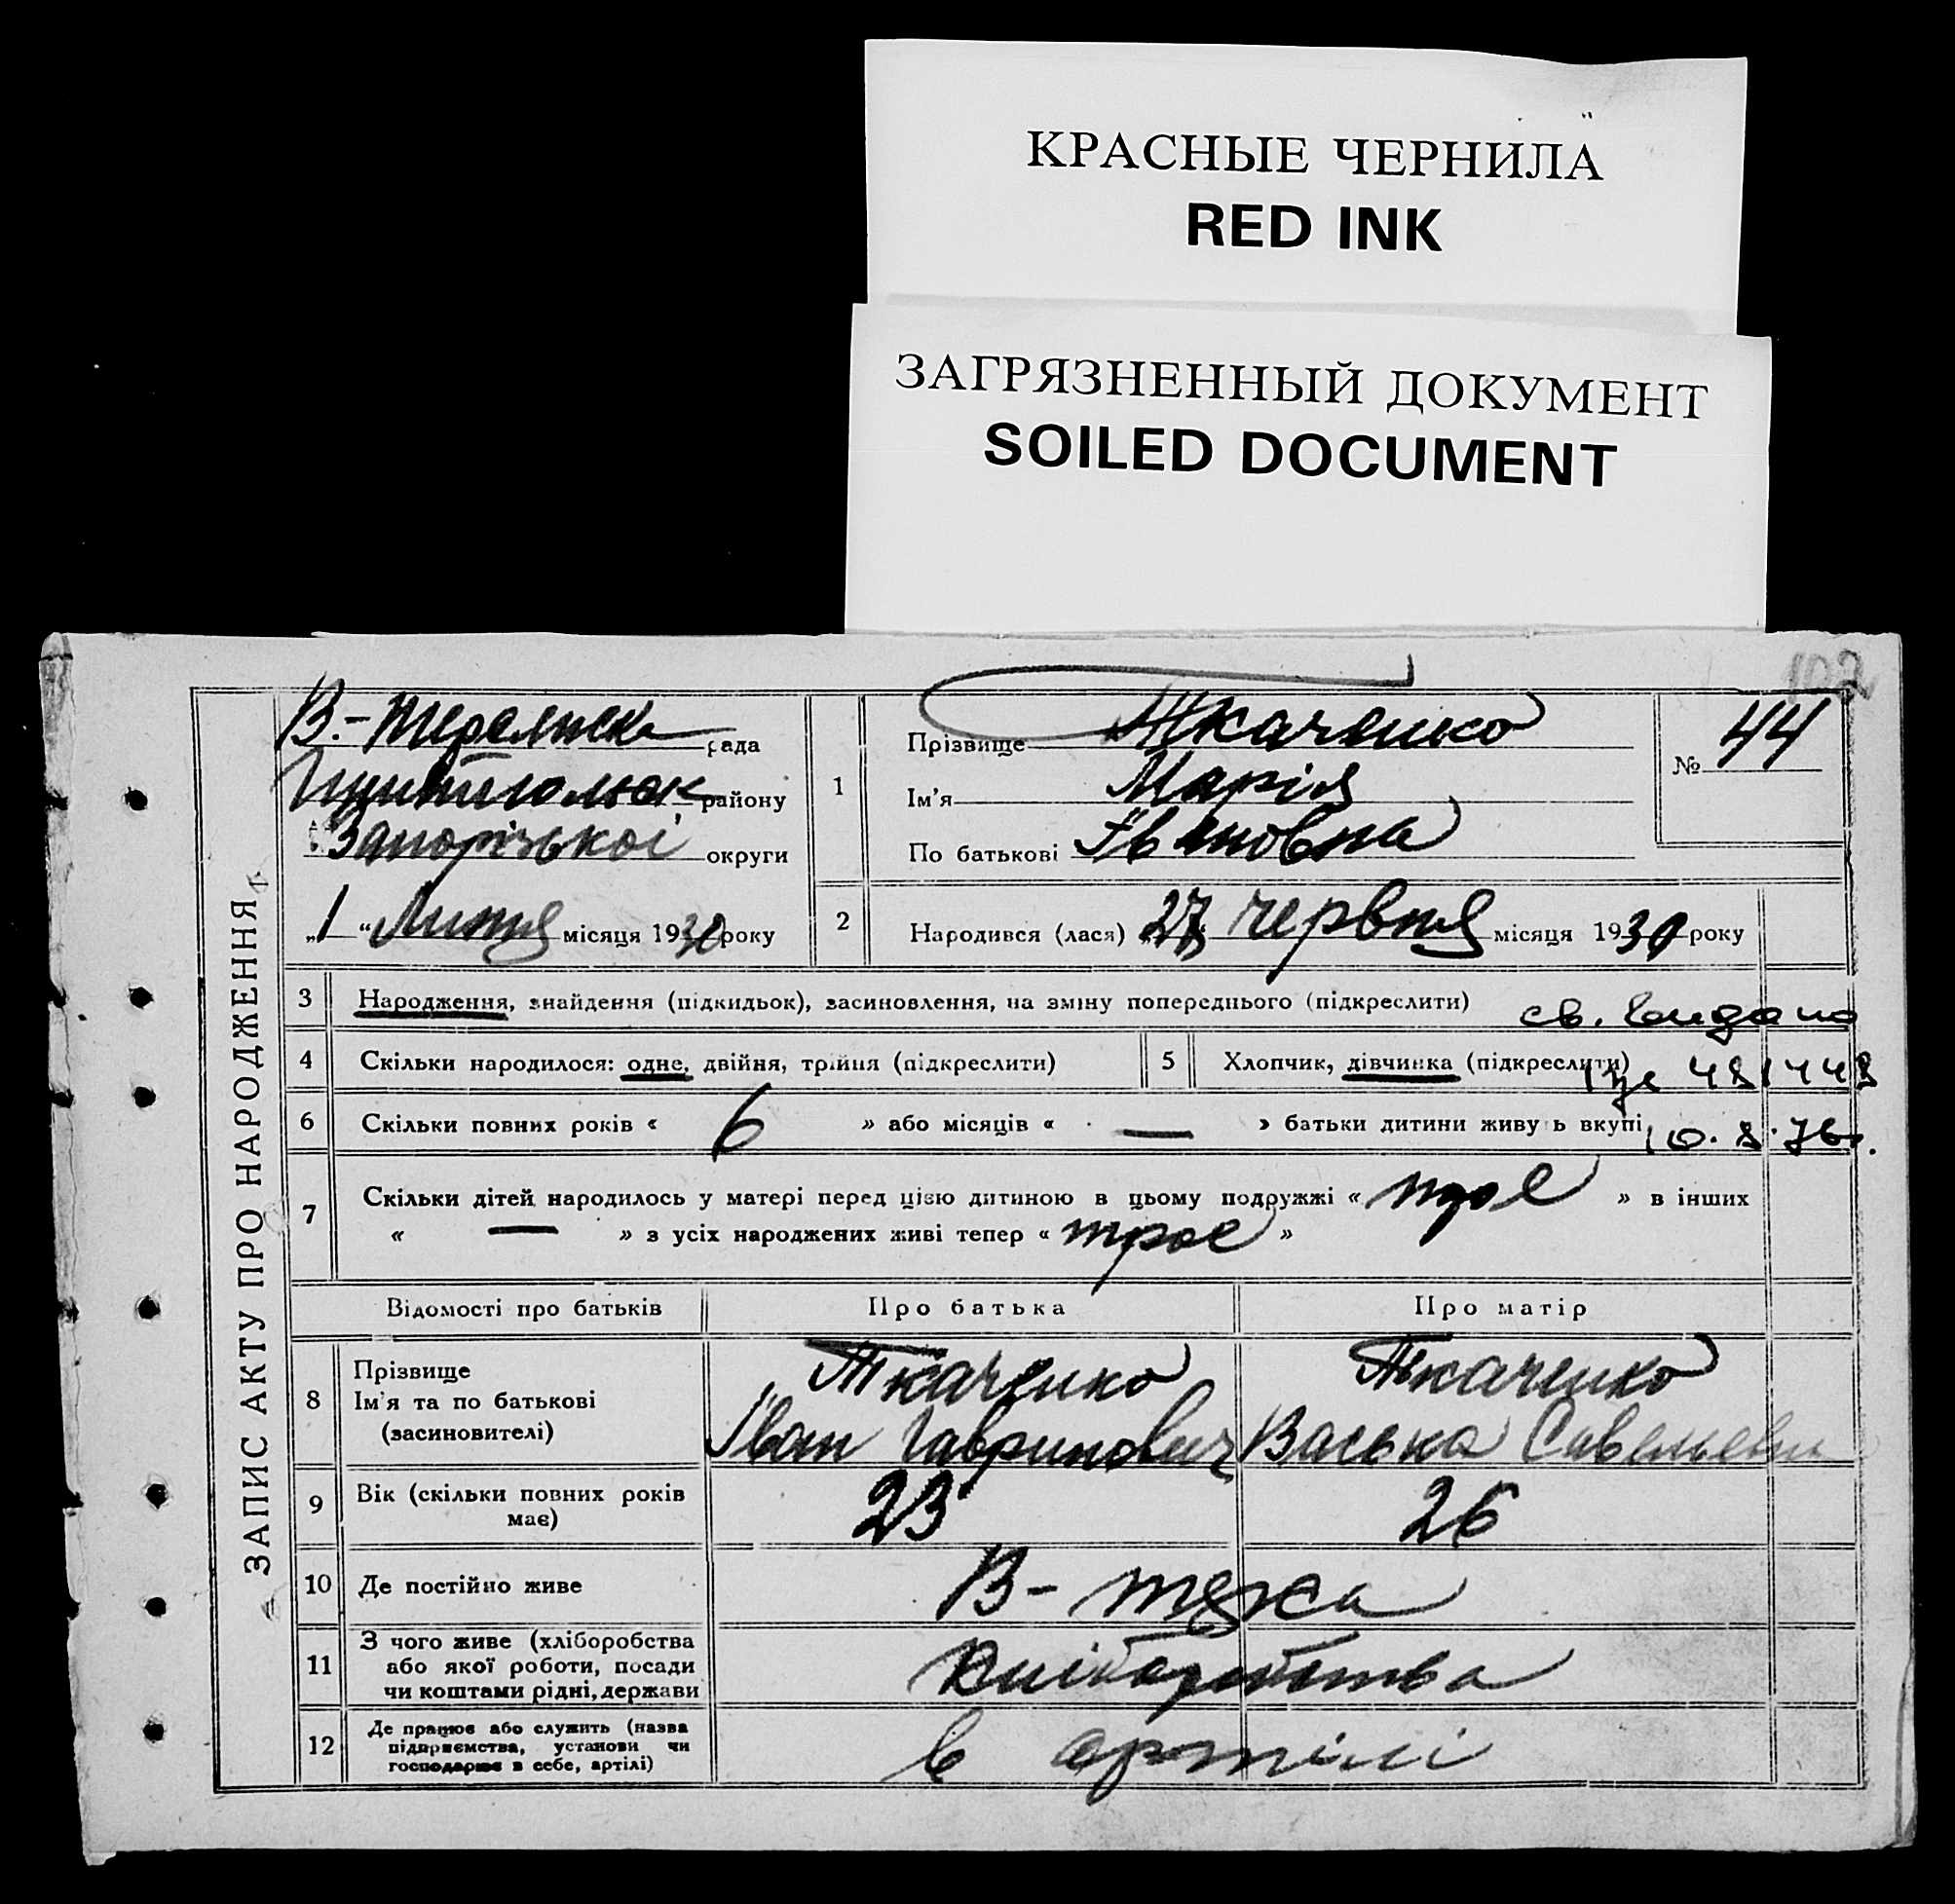 КРАСНЫЕ ЧЕРНИЛА
RED INK
ЗАГРЯЗНЕННЫЙ ДОКУМЕНТ
SOILED DOCUMENT
102
ЗАПИС АКТУ ПРО НАРОДЖЕННЯ
рада
району
Запорізької округи
„1“ Липня місяця 1930 року
1
Прізвище Ткаченко
Ім'я Марія
По батькові Івановна
№ 44
2 Народився (лася) 27 червня місяця 1930 року
3 Народження, знайдення (підкидьок), засиновлення, на зміну попереднього (підкреслити)
св. видано
4 Скільки народилося: одне, двійня, трійня (підкреслити)
5 Хлопчик, дівчинка (підкреслити)
6 Скільки повних років « 6 » або місяців « — » батьки дитини живуть вкупі
7 Скільки дітей народилось у матері перед цією дитиною в цьому подружжі « троє » в інших
« — » з усіх народжених живі тепер « троє »
Відомості про батьків Про батька Про матір
8 Прізвище Ткаченко Ткаченко
Ім'я та по батькові Іван Васька
(засиновителі)
9 Вік (скільки повних років має) 23 26
10 Де постійно живе
11 З чого живе (хліборобства
або якої роботи, посади
чи коштами рідні, держави
12 Де працює або служить (назва
підприємства, установи чи
господарює в себе, артілі)
в артілі